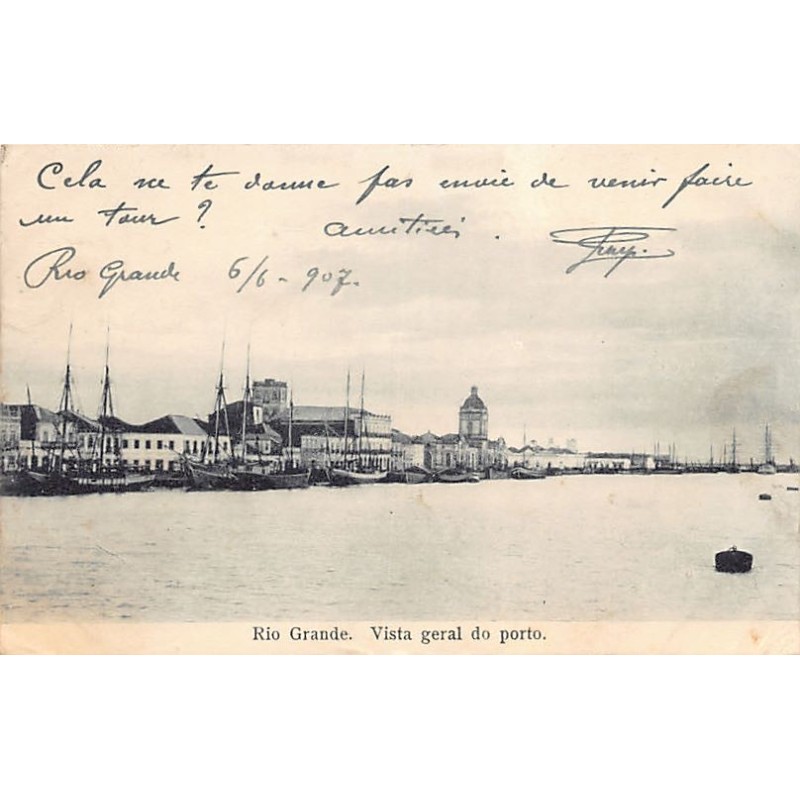 Cela ne te donne pas envie de venir faire
un tour ? amitiés.
Rio Grande 6/6 - 907.
Rio Grande. Vista geral do porto.